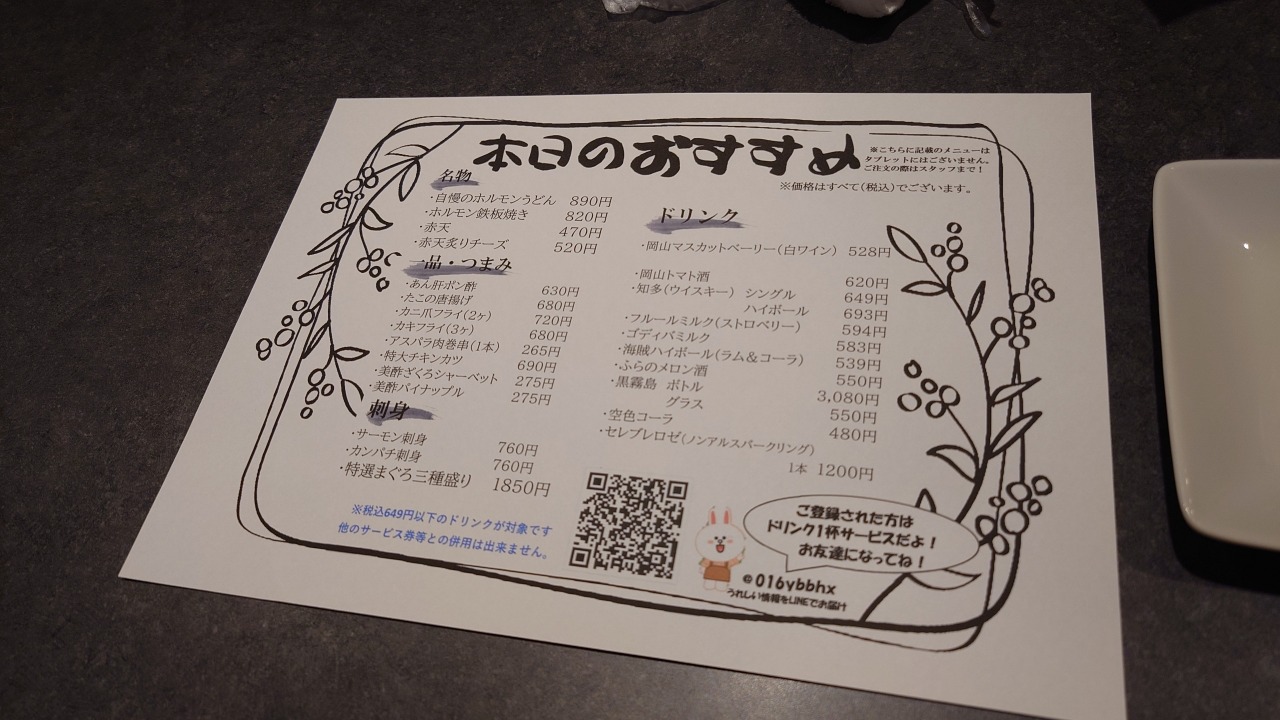 本日のおすすめ
※こちらに記載のメニューは
タブレットにはございません。
ご注文の際はスタッフまで！
※価格はすべて(税込)でございます。
名物
・自慢のホルモンうどん 890円
・ホルモン鉄板焼き 820円
・赤天 470円
・赤天炙りチーズ 520円
一品・つまみ
・あん肝ポン酢 630円
・たこの唐揚げ 680円
・カニ爪フライ(2ヶ) 720円
・カキフライ(3ヶ) 680円
・アスパラ肉巻串(1本) 265円
・特大チキンカツ 690円
・美酢ざくろシャーベット 275円
・美酢パイナップル 275円
刺身
・サーモン刺身 760円
・カンパチ刺身 760円
・特選まぐろ三種盛り 1850円
※税込649円以下のドリンクが対象です
他のサービス券等との併用は出来ません。
ドリンク
・岡山マスカットベーリー(白ワイン) 528円
・岡山トマト酒 620円
・知多(ウイスキー) シングル 649円
ハイボール 693円
・フルールミルク(ストロベリー) 594円
・ゴディバミルク 583円
・海賊ハイボール(ラム＆コーラ) 539円
・ふらのメロン酒 550円
・黒霧島 ボトル 3,080円
グラス 550円
・空色コーラ 480円
・セレブレロゼ(ノンアルスパークリング)
1本 1200円
ご登録された方は
ドリンク1杯サービスだよ！
お友達になってね！
@016ybbhx
うれしい情報をLINEでお届け